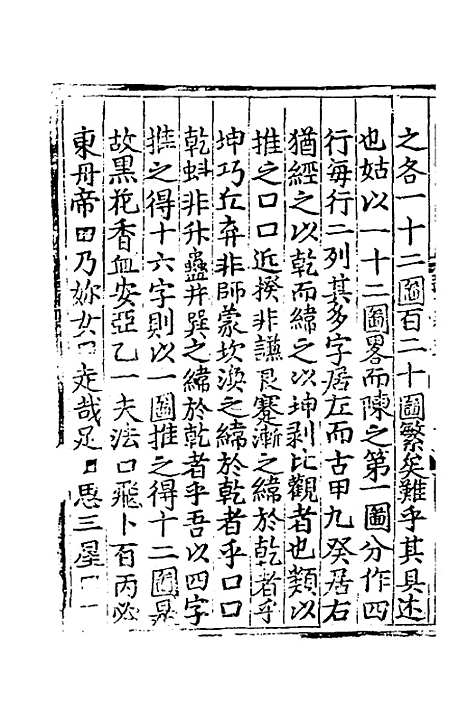 之各一十二圖百二十圖繁矣難乎其具述
也姑以一十二圖畧而陳之第一圖分作四
行每行二列其多字居左而古甲九癸居右
猶經之以乾而緯之以坤剥比觀者也類以
推之口口近揆非謙艮蹇漸之緯於乾者乎
坤巧丘弃非師蒙坎渙之緯於乾者乎口口
乾蚪非升蠱井巽之緯於乾者乎吾以四字
推之得十六字則以一圖推之得十二圖
故黑花香血安亞乙一夫法口飛卜百丙必
東丹帝田乃妳女口走哉足口思三星口一